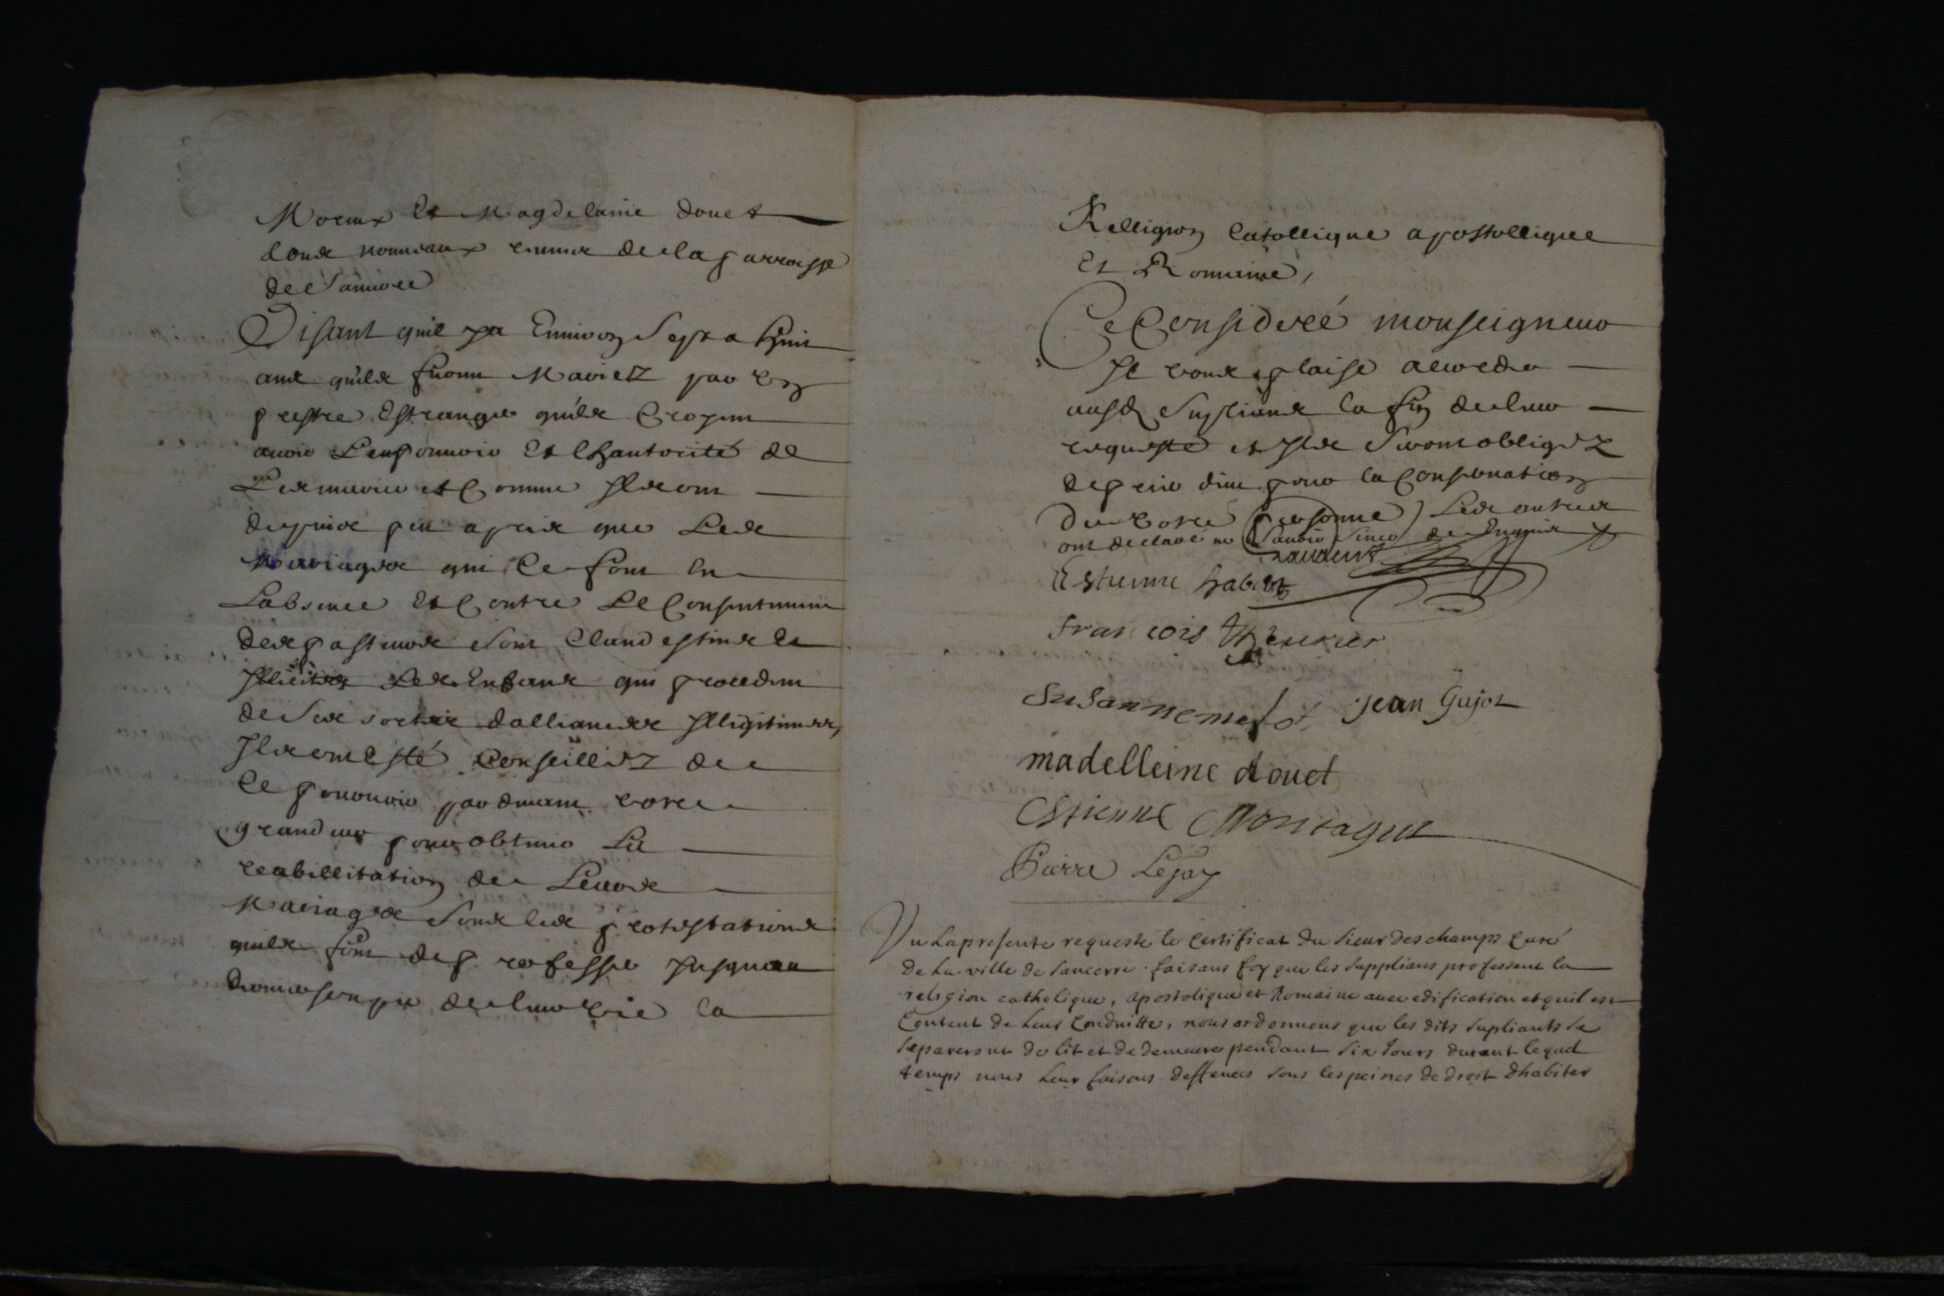 Moreux Et Magdelaine douet
tous nouveaux reunis de la parroisse
de Sancere
Disant quil ya Environ Sept a huit
ans quils furent Mariez par un
prestre Estranger quils Croyent
avoir Le pouvoir Et Lhautorité de
Les marier et Comme Ils ont
depuis peu apris que Les
Mariages qui Ce font En
Labsence Et Contre Le Consentement
des pasteurs sont Clandestins Et
Illicites Les Enfans qui procedent
de Ses sortes dalliances Illigitimes,
Ils ont Esté Conseillez de
Ce pourvoir par devant vostre
grandeur pour obtenir La
reabillitation de Leurs
Mariages Sous les protestations
quils font de professer Jusquau
dernier soupir de leur vie la
Relligion Catollique apostollique
Et Romaine,
Ce Consideré monseigneur
Il vous plaise accorder
ausd Suplians la fin de leur
requeste et Ils Seront obligez
de prier dieu pour la Conservation
de vostre personne) Les autres
ont declaré ne Scavoir Siner de Enquis
Estienne habert
francois
Susanne merlot Jean Gujot
madelleine douet
Estienne Montagut
Pierre Lejay
Vu la presente requeste le Certificat du Sieur des champs Curé
de La ville de Sancerre faisans foy que les Supplians professent la
religion catholique, apostolique et Romaine avec edification et quil est
Content de leur Conduitte, nous ordonnons que les dits Supliants Se
Separeront de lit et de demeure pendant Six Jours durant lequel
temps nous leur faisons deffences sous les peines de droit dhabiter